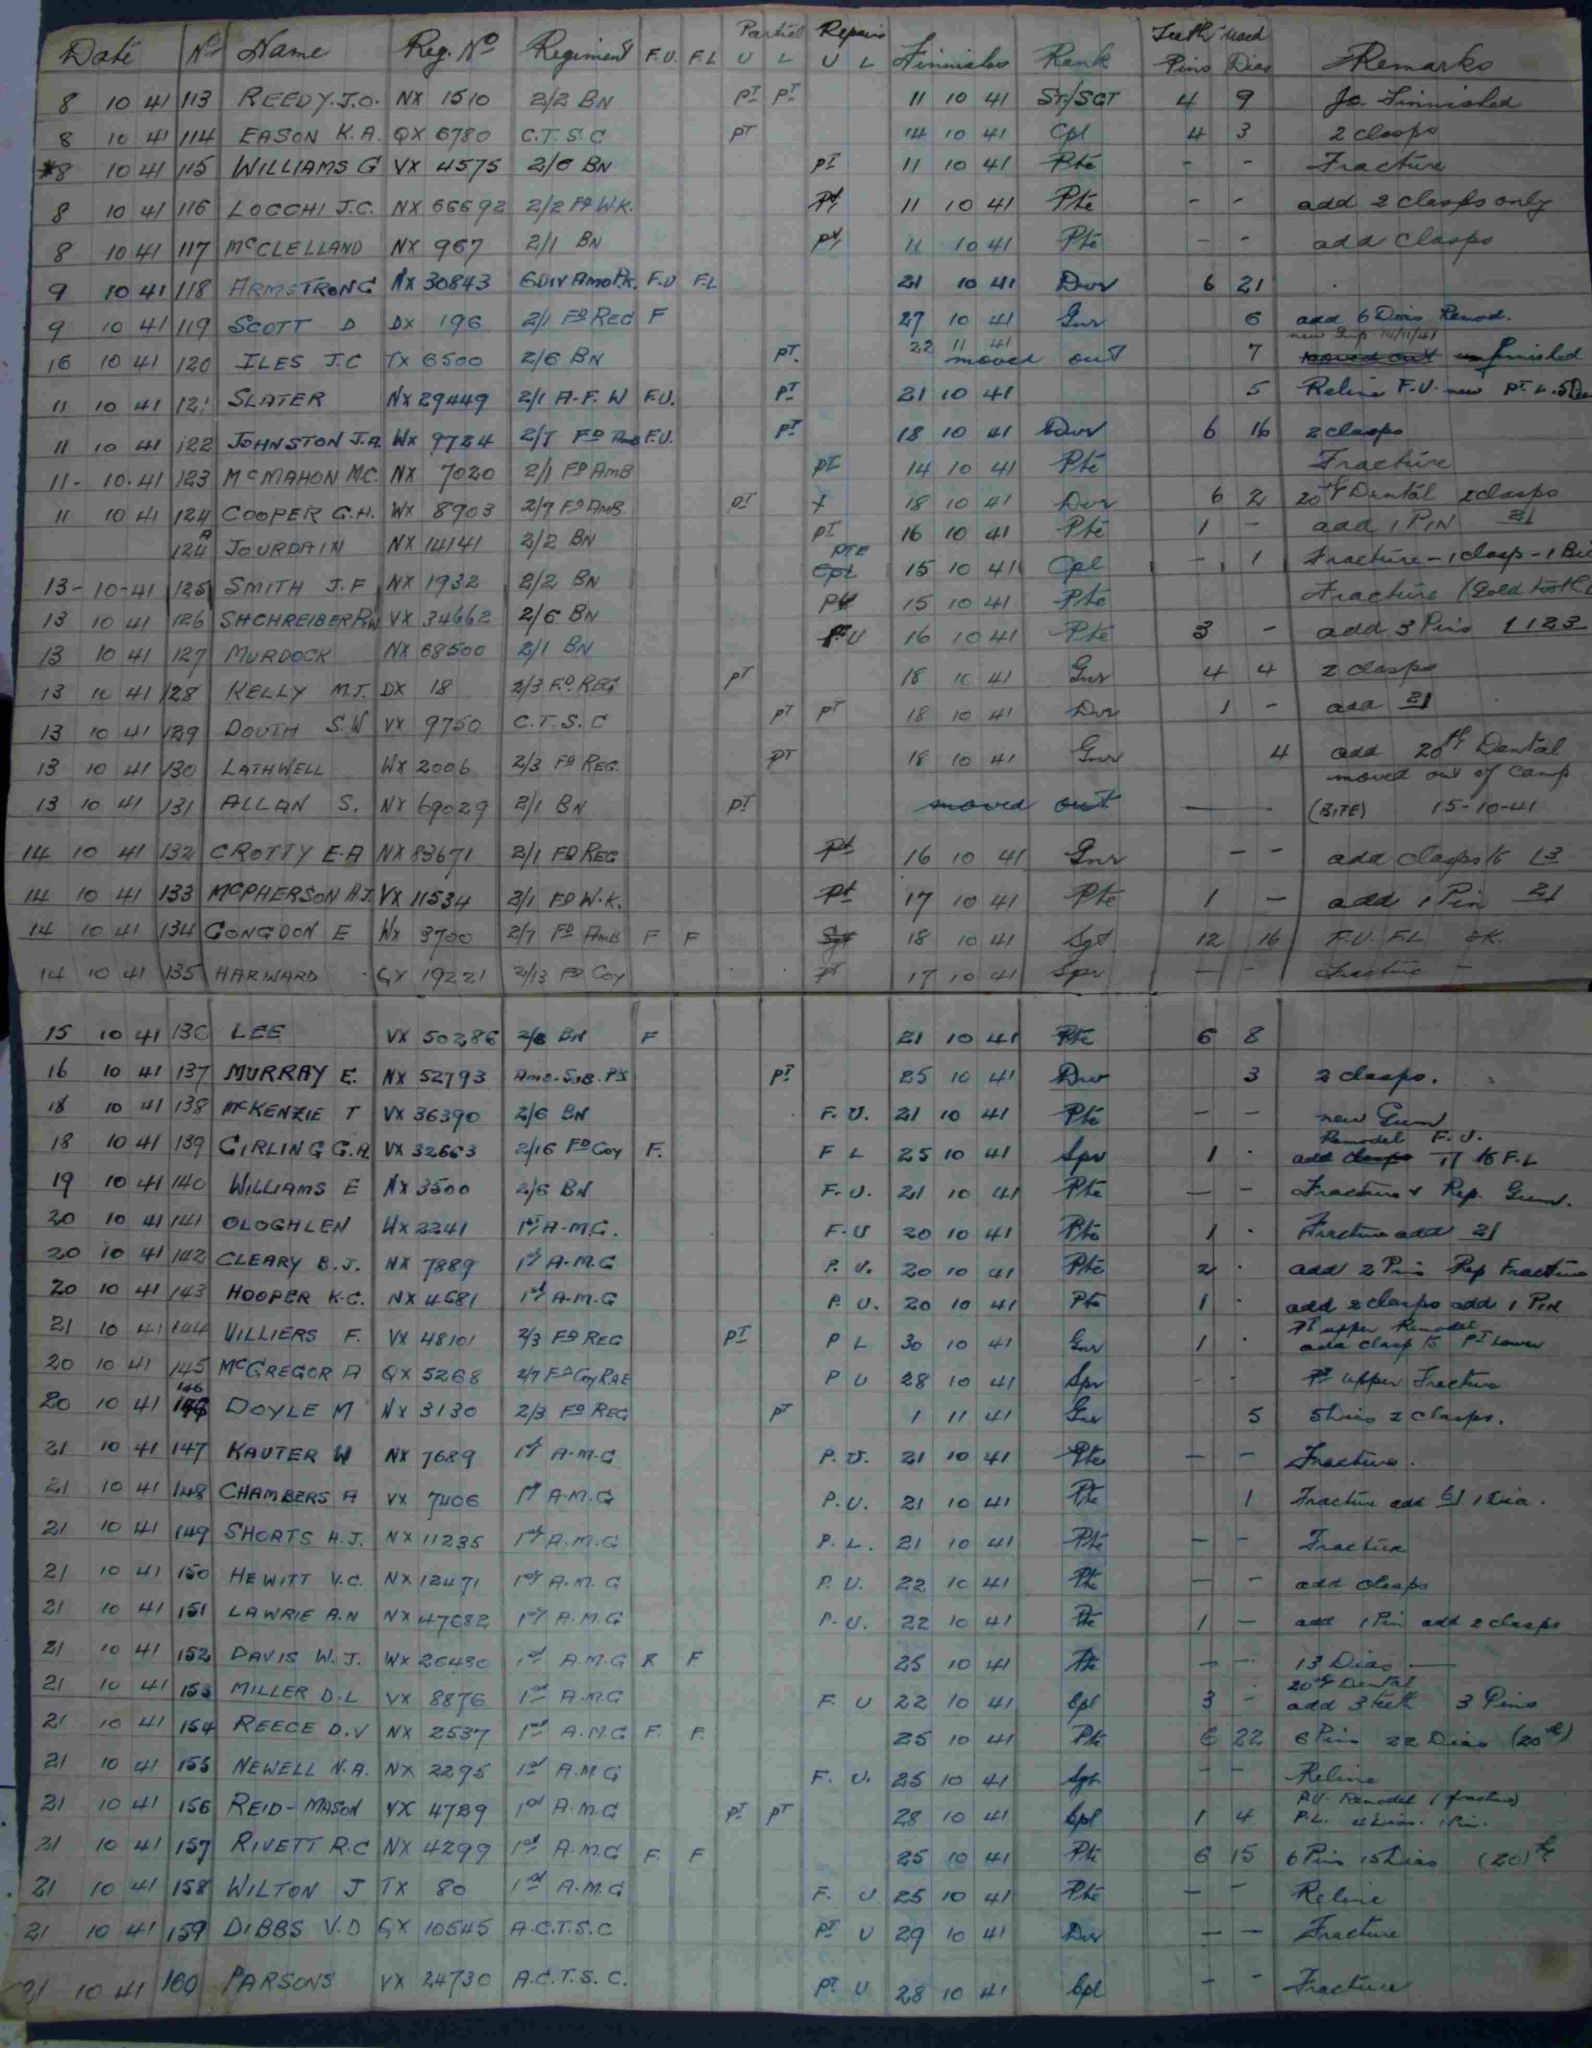 Partial Repairs Teeth Used
Date No Name Reg. No Regiment F.U. F.L U L U L Finnished Rank Pins Dias Remarks
8 10 41 113 REEDY. J.O. NX 1510 2/2 BN PT PT 11 10 41 ST/SGT 4 9 Jo. Finnished
8 10 41 114 EASON K.A. QX 6780 C.T.S.C PT 14 10 41 Cpl 4 3 2 clasps
*8 10 41 115 WILLIAMS G VX 4575 2/6 BN PT 11 10 41 Pte - - Fracture
8 10 41 116 LOCCHI J.C. NX 66692 2/2 FD W.K. PT 11 10 41 Pte - - add 2 clasps only
8 10 41 117 McCLELLAND NX 967 2/1 BN PT 11 10 41 Pte - - add clasps
9 10 41 118 ARMSTRONG NX 30843 6 DIV AMO PK. F.U F.L 21 10 41 Dvr 6 21
9 10 41 119 SCOTT D DX 196 2/1 FD REG F 27 10 41 Gnr 6 add 6 Dias Remod.
new Imp 10/11/41
16 10 41 120 ILES J.C TX 6500 2/6 BN PT. 22 11 41 moved out 7 moved out unfinnished
11 10 41 121 SLATER NX 29449 2/1 A.F.W F.U. PT 21 10 41 5 Reline F.U. new PT L. 5 Dias
11 10 41 122 JOHNSTON J.A. WX 9784 2/7 FD AMB F.U. PT 18 10 41 Dvr 6 16 2 clasps
11- 10.41 123 McMAHON M.C. NX 7020 2/1 FD AMB PT 14 10 41 Pte Fracture
11 10 41 124 COOPER G.H. WX 8903 2/7 FD AMB PT 18 10 41 Dvr 6 2 20th Dental 2 clasps
124A JOURDAIN NX 14141 2/2 BN PT 16 10 41 Pte 1 - add 1 PIN 2|
13-10-41 125 SMITH J.F NX 1932 2/2 BN PTE CPL 15 10 41 Cpl - 1 Fracture - 1 clasp - 1 Bic
13 10 41 126 SHCHREIBER R.W VX 34662 2/6 BN PT 15 10 41 Pte Fracture (Gold tooth
13 10 41 127 MURDOCK NX 68500 2/1 BN PT U 16 10 41 Pte 3 - add 3 Pins |123
13 10 41 128 KELLY M.J. DX 18 2/3 FD. REG PT 18 10 41 Gnr 4 4 2 clasps
13 10 41 129 DOUTH S.W VX 9750 C.T.S.C PT PT 18 10 41 Dvr 1 - add 2|
13 10 41 130 LATHWELL WX 2006 2/3 FD REG. PT 18 10 41 Gnr 4 add 20th Dental
moved out of Camp
13 10 41 131 ALLAN S. NX 69029 2/1 BN PT moved out — - (BITE) 15-10-41
14 10 41 132 CROTTY E.A NX 83671 2/1 FD REG PT 16 10 41 Gnr - - add clasps to |3
14 10 41 133 McPHERSON H.J. VX 11534 2/1 FD W.K. PT 17 10 41 Pte 1 - add 1 Pin 2|
14 10 41 134 CONGDON E WX 3700 2/7 FD AMB F F Sgt 18 10 41 Sgt 12 16 F.U. F.L OK.
14 10 41 135 HARWARD QX 19221 2/13 FD COY PT 17 10 41 Spr - - Fracture -
15 10 41 136 LEE VX 50286 2/6 BN F 21 10 41 Pte 6 8
16 10 41 137 MURRAY E. NX 52793 AMO. SUB. PK PT 25 10 41 Dvr 3 2 clasps.
18 10 41 138 McKENZIE T VX 36390 2/6 BN F.U. 21 10 41 Pte - - new Gum
Remodel F.U.
18 10 41 139 GIRLING G.A. VX 32663 2/16 FD Coy F. F L 25 10 41 Spr 1 . add clasps 7| to F.L
19 10 41 140 WILLIAMS E NX 3500 2/6 BN F.U. 21 10 41 Pte - - Fracture & Rep. Gum.
20 10 41 141 OLOGHLEN WX 2241 1ST A.M.G. F.U 20 10 41 Pte 1 . Fracture add 2|
20 10 41 142 CLEARY B.J. NX 7889 1st A.M.G P.U. 20 10 41 Pte 2 . add 2 Pins Rep Fracture
20 10 41 143 HOOPER K.C. NX 4581 1st A.M.G P.U. 20 10 41 Pte 1 . add 2 clasps add 1 PIN
PT upper Remodel
21 10 41 144 VILLIERS F. VX 48101 2/3 FD REG PT P L 30 10 41 Gnr 1 . add clasp to PT Lower
20 10 41 145 McGREGOR A QX 5268 2/7 FD Coy RAE P U 28 10 41 Spr - - PT upper Fracture
20 10 41 146 DOYLE M NX 3130 2/3 FD REG PT 1 11 41 Gnr 5 5 Dias 2 clasps.
21 10 41 147 KAUTER W NX 7689 1st A.M.G P.U. 21 10 41 Pte - - Fracture.
21 10 41 148 CHAMBERS A VX 7406 1st A.M.G P.U. 21 10 41 Pte 1 Fracture add 6| 1 Dia.
21 10 41 149 SHORTS H.J. NX 11235 1st A.M.G P.L. 21 10 41 Pte - - Fracture
21 10 41 150 HEWITT V.C. NX 12471 1st A.M.G P.U. 22 10 41 Pte - - add clasps
21 10 41 151 LAWRIE A.N NX 47082 1st A.M.G P.U. 22 10 41 Pte 1 - add 1 Pin add 2 clasps
21 10 41 152 DAVIS W.J. WX 26480 1st A.M.G F F 25 10 41 Pte - - 13 Dias —
20th Dental
21 10 41 153 MILLER D.L VX 8876 1st A.M.G F. U 22 10 41 Cpl 3 - add 3 teeth 3 Pins
21 10 41 154 REECE D.V NX 2537 1st A.M.G F. F. 25 10 41 Pte 6 22 6 Pins 22 Dias (20th)
21 10 41 155 NEWELL N.A. NX 2295 1st A.M.G F. U. 25 10 41 Sgt - - Reline
P.U. Remodel (fracture)
21 10 41 156 REID-MASON VX 4789 1st A.M.G PT PT 28 10 41 Cpl 1 4 P.L. 4 Dias. 1 Pin.
21 10 41 157 RIVETT R.C NX 4299 1st A.M.G F. F 25 10 41 Pte 6 15 6 Pins 15 Dias (20)th
21 10 41 158 WILTON J TX 80 1st A.M.G F. U 25 10 41 Pte - - Reline
21 10 41 159 DIBBS V.D QX 10545 A.C.T.S.C PT U 29 10 41 Dvr - - Fracture
21 10 41 160 PARSONS VX 24730 A.C.T.S.C. PT U 28 10 41 Cpl - - Fracture